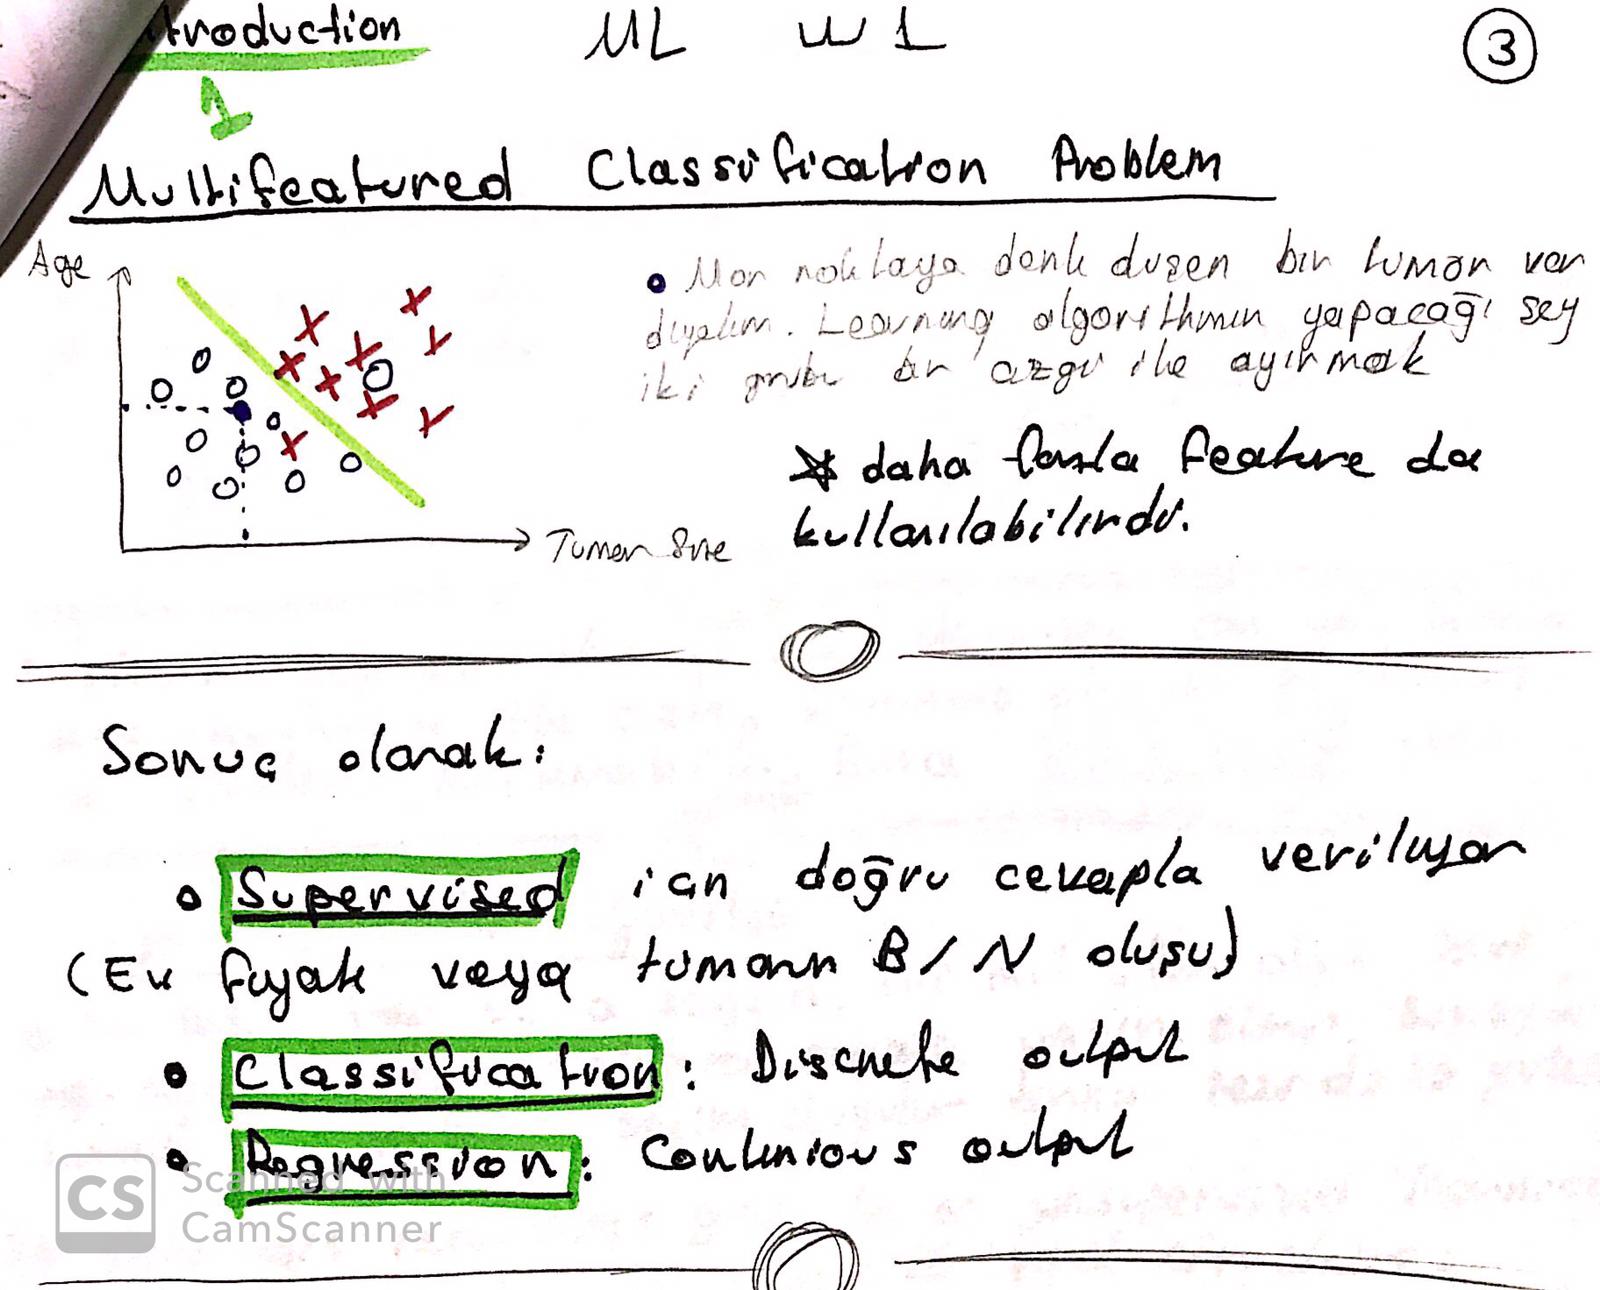 troduction ML W1 3
1
Multifeatured Classification Problem
Age
• Mor noktaya denk düşen bir tumor var
diyelim. Learning algorithmin yapacağı şey
iki grubu bir çizgi ile ayırmak
* daha fazla feature da
kullanılabilirdi.
Tumor Size
Sonuç olarak:
• Supervised için doğru cevapla veriliyor
(Ev fiyatı veya tumorun B/N oluşu)
• Classification: Discrete output
• Regression: Continious output
CS Scanned with
CamScanner